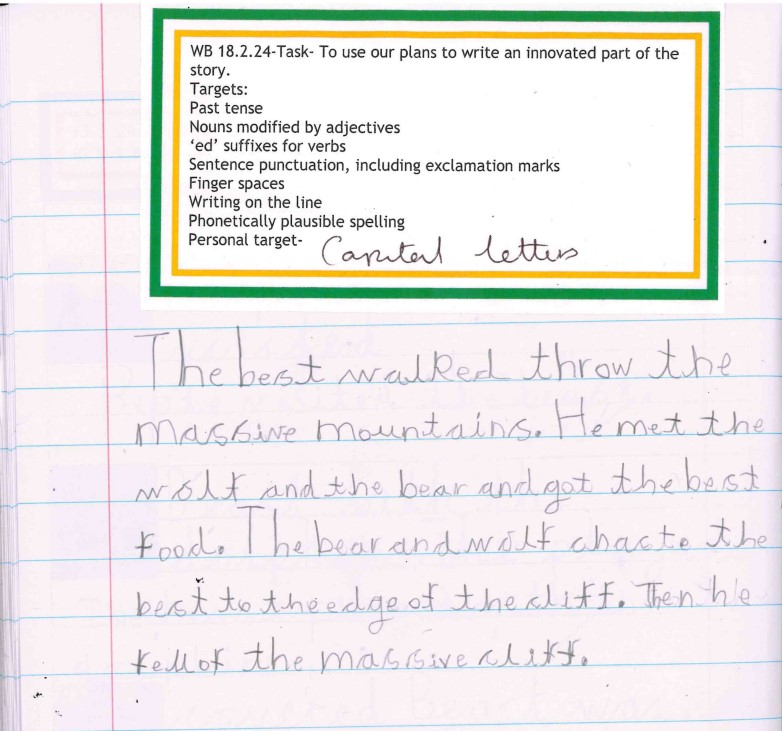 WB 18.2.24-Task- To use our plans to write an innovated part of the
story.
Targets:
Past tense
Nouns modified by adjectives
'ed' suffixes for verbs
Sentence punctuation, including exclamation marks
Finger spaces
Writing on the line
Phonetically plausible spelling
Personal target- Capital letters
The best walked throw the
massive mountains. He met the
wolf and the bear and got the best
food. The bear and wolf chacte the
best to the edge of the cliff. Then he
fell of the massive cliff.